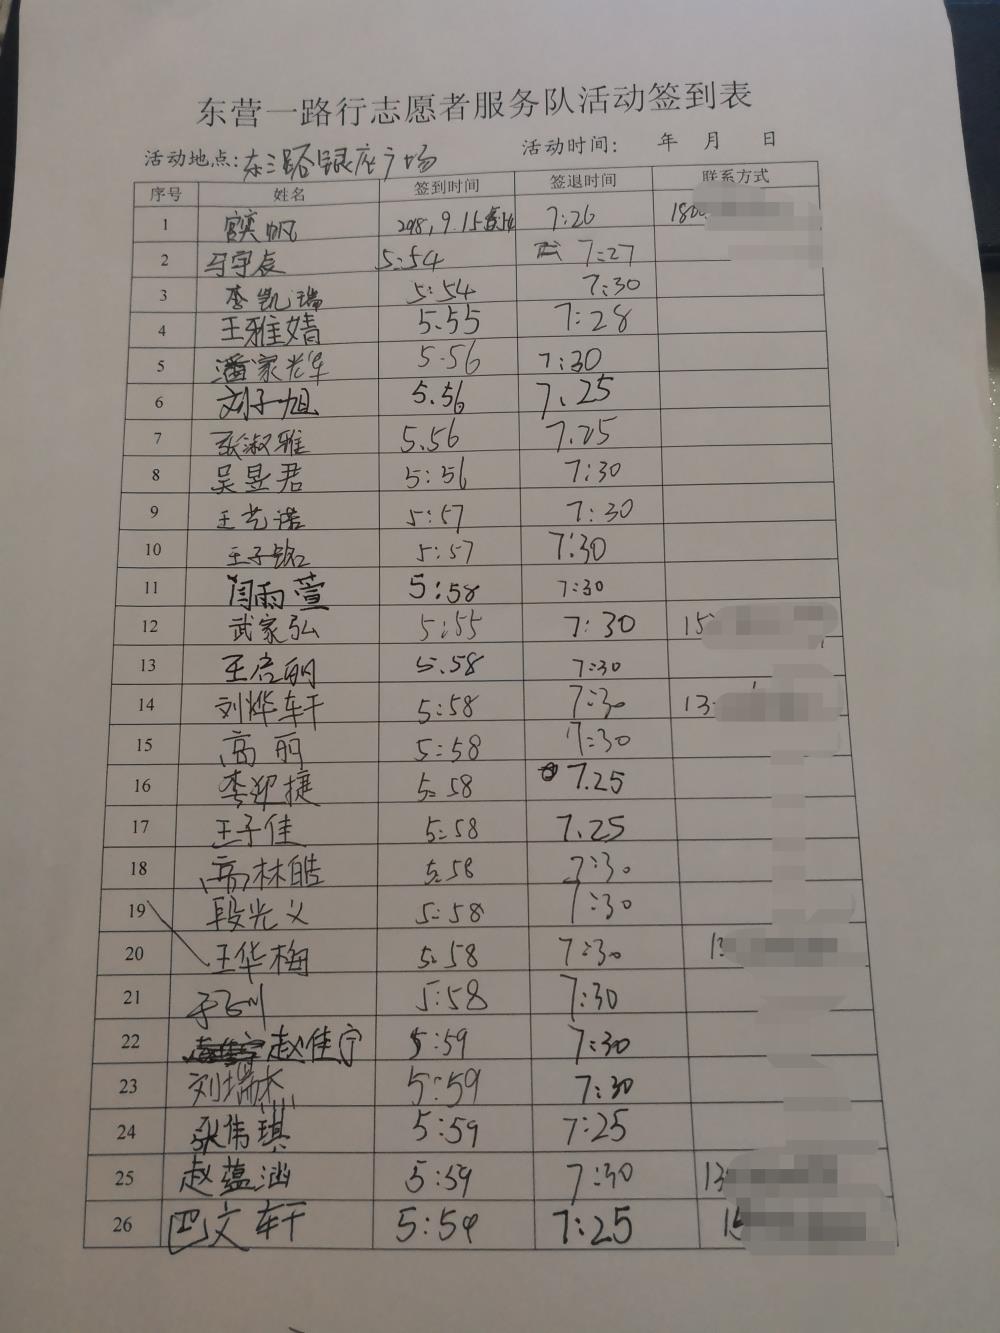 东营一路行志愿者服务队活动签到表
活动地点:东三路银座广场 活动时间: 年 月 日
序号 姓名 签到时间 签退时间 联系方式
1 帆 9.15 7:26 180
2 马宇辰 5:54 7:27
3 李凯瑞 5:54 7:30
4 王雅婧 5.55 7:28
5 潘家光华 5.56 7:30
6 刘子旭 5.56 7.25
7 张淑雅 5.56 7.25
8 吴昱君 5:56 7:30
9 王艺诺 5:57 7:30
10 王子铭 5:57 7:30
11 闫雨萱 5:58 7:30
12 武家弘 5:55 7:30 15
13 王启明 5.58 7:30
14 刘烨轩 5:58 7:30 13
15 高丽 5:58 7:30
16 李迎捷 5:58 7.25
17 王子佳 5:58 7.25
18 高林皓 5:58 7:30
19 段光义 5:58 7:30
20 王华梅 5:58 7:30 13
21 于飞川 5:58 7:30
22 赵佳宁 5:59 7:30
23 刘瑞杰 5:59 7:30
24 张伟琪 5:59 7:25
25 赵蕴涵 5:59 7:30 13
26 巴文轩 5:59 7:25 15